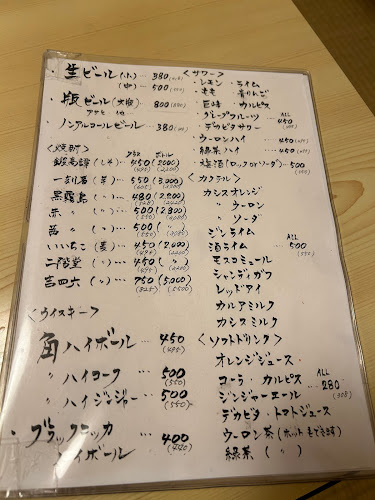 ・生ビール(小)… 380(418)
〃 (中)… 500(550)
・瓶ビール(大瓶) 800(880)
アサヒ
・ノンアルコールビール… 380(418)
<焼酎>
グラス ボトル
(しそ) 450(2,000)
(495) (2,200)
一刻者(芋) 550(3,000)
(605) (3,300)
黒霧島(〃) 480(2,200)
赤 〃 (〃) 500(2,800)
(550)
〃 (〃) 500(〃)
(550)
いいちこ(麦) 450(2,000)
(495) (2,200)
二階堂(〃) 450(〃)
(495) (2,200)
吉四六(〃) 750(5,000)
(825) (5,500)
<ウイスキー>
角ハイボール… 450
(495)
〃 ハイコーク… 500
(550)
〃 ハイジンジャー… 500
(550)
・ブラックニッカ… 400
ハイボール (440)
<サワー>
・レモン ・ライム
・もも ・青りんご
・巨峰 ・カルピス
・グレープフルーツ ALL
・デカビタサワー 450
(495)
・ウーロンハイ… 450(495)
・緑茶ハイ… 450(495)
・梅酒(ロックorソーダ) 500
(550)
<カクテル>
カシスオレンジ
〃 ウーロン
〃 ソーダ
ジンライム
酒ライム ALL
モスコミュール 500
(550)
シャンディガフ
レッドアイ
カルアミルク
カシスミルク
<ソフトドリンク>
オレンジジュース
コーラ・カルピス ALL
ジンジャーエール 280
(308)
デカビタ・トマトジュース
ウーロン茶(ホットもできます)
緑茶(〃)